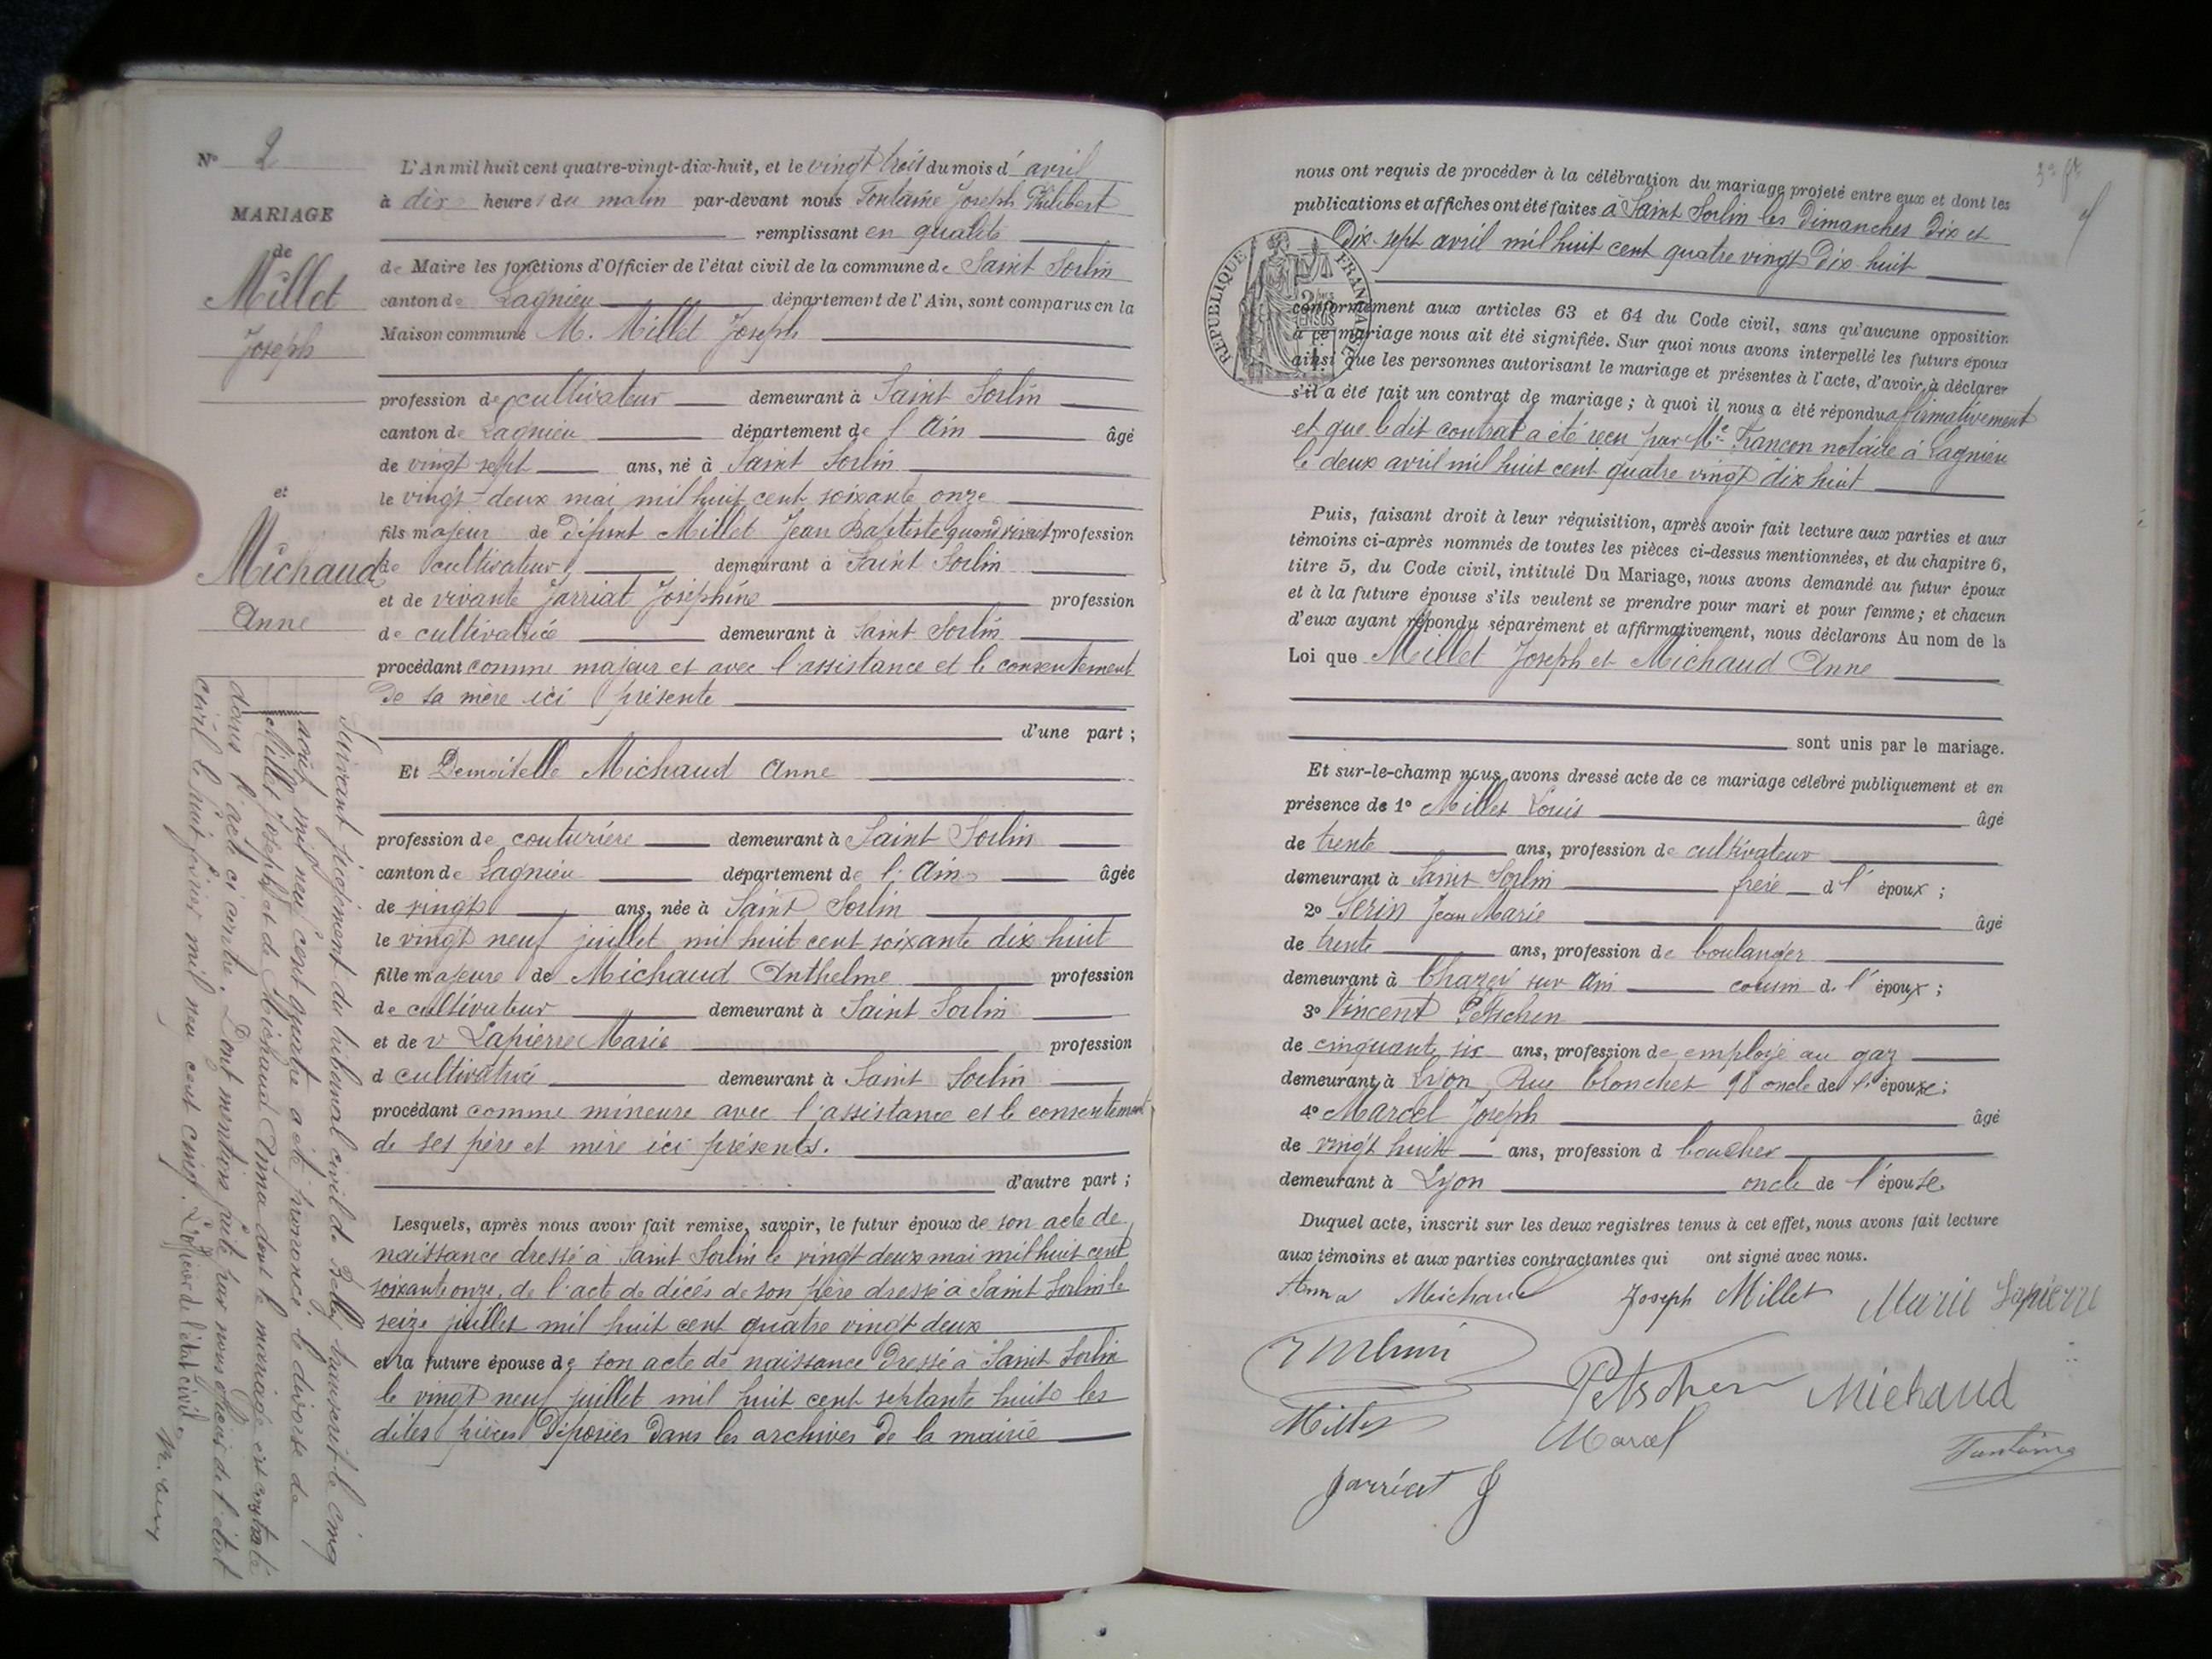 N° 2
MARIAGE
de
Millet
Joseph
et
Michaud
Anne
Suivant jugement du tribunal civil de Belley transcrit le cinq
août mil neuf cent quatre a été prononcé le divorce de
Millet Joseph et de Michaud Anna dont le mariage est constaté
dans l'acte ci contre. Dont mention faite par nous officier de l'état
civil le huit février mil neuf cent cinq. L'officier de l'état civil.
L'An mil huit cent quatre-vingt-dix-huit, et le vingt trois du mois d'avril
à dix heures du matin par-devant nous Fontaine Joseph Philibert
remplissant en qualité
de Maire les fonctions d'Officier de l'état civil de la commune de Saint Sorlin
canton de Lagnieu département de l'Ain, sont comparus en la
Maison commune M. Millet Joseph
profession de cultivateur demeurant à Saint Sorlin
canton de Lagnieu département de l'Ain âgé
de vingt sept ans, né à Saint Sorlin
le vingt-deux mai mil huit cent soixante onze
fils majeur de Défunt Millet Jean Baptiste quand vivait profession
de cultivateur demeurant à Saint Sorlin
et de vivante Jarriat Joséphine profession
de cultivatrice demeurant à Saint Sorlin
procédant comme majeur et avec l'assistance et le consentement
de sa mère ici présente
d'une part;
Et Demoiselle Michaud Anne
profession de couturière demeurant à Saint Sorlin
canton de Lagnieu département de l'Ain âgée
de vingt ans, née à Saint Sorlin
le vingt neuf juillet mil huit cent soixante dix huit
fille majeure de Michaud Anthelme profession
de cultivateur demeurant à Saint Sorlin
et de v Lapierre Marie profession
d cultivatrice demeurant à Saint Sorlin
procédant comme mineure avec l'assistance et le consentement
de ses père et mère ici présents.
d'autre part;
Lesquels, après nous avoir fait remise, savoir, le futur époux de son acte de
naissance dressé à Saint Sorlin le vingt deux mai mil huit cent
soixante onze, de l'acte de décès de son père dressé à Saint Sorlin le
seize juillet mil huit cent quatre vingt deux
et la future épouse de son acte de naissance Dressé à Saint Sorlin
le vingt neuf juillet mil huit cent septante huit les
dites pièces Déposées Dans les archives De la mairie
nous ont requis de procéder à la célébration du mariage projeté entre eux et dont les
publications et affiches ont été faites à Saint Sorlin les Dimanches Dix et
Dix-sept avril mil huit cent quatre vingt Dix-huit
REPUBLIQUE FRANCAISE
conformément aux articles 63 et 64 du Code civil, sans qu'aucune opposition
à ce mariage nous ait été signifiée. Sur quoi nous avons interpellé les futurs époux
ainsi que les personnes autorisant le mariage et présentes à l'acte, d'avoir à déclarer
s'il a été fait un contrat de mariage; à quoi il nous a été répondu affirmativement
et que le dit contrat a été reçu par Me Francon notaire à Lagnieu
le deux avril mil huit cent quatre vingt dix huit
Puis, faisant droit à leur réquisition, après avoir fait lecture aux parties et aux
témoins ci-après nommés de toutes les pièces ci-dessus mentionnées, et du chapitre 6,
titre 5, du Code civil, intitulé Du Mariage, nous avons demandé au futur époux
et à la future épouse s'ils veulent se prendre pour mari et pour femme; et chacun
d'eux ayant répondu séparément et affirmativement, nous déclarons Au nom de la
Loi que Millet Joseph et Michaud Anne
sont unis par le mariage.
Et sur-le-champ nous avons dressé acte de ce mariage célébré publiquement et en
présence de 1° Millet Louis âgé
de trente ans, profession de cultivateur
demeurant à Saint Sorlin frère d l'époux;
2° Serin Jean Marie âgé
de trente ans, profession de boulanger
demeurant à Chazey sur Ain cousin d. l'époux;
3° Vincent Petschen
de cinquante six ans, profession de employé au gaz
demeurant à Lyon Rue 98 oncle de l'épouse;
4° Marcel Joseph âgé
de vingt huit ans, profession d boucher
demeurant à Lyon oncle de l'épouse
Duquel acte, inscrit sur les deux registres tenus à cet effet, nous avons fait lecture
aux témoins et aux parties contractantes qui ont signé avec nous.
Anna Michaud Joseph Millet Marie Lapierre
Petschen Michaud
Millet Marcel Fontaine
Jarriat J